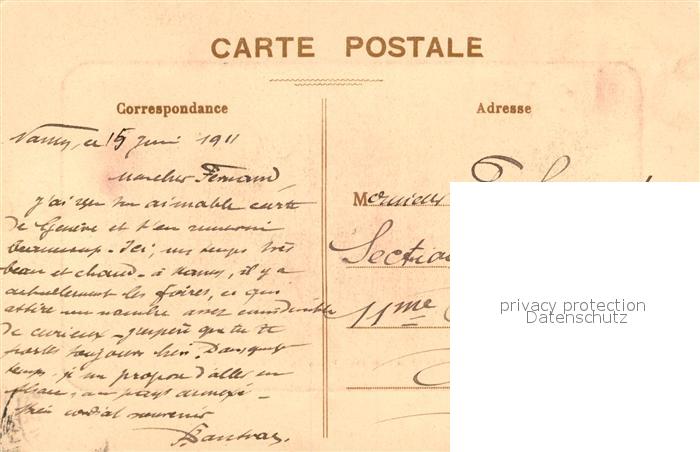 CARTE POSTALE
Correspondance
Adresse
Nancy, ce 15 Juin 1911
Mon cher Fernand
J'ai reçu ton aimable carte
de Genève et t'en remercie
beaucoup. Ici, un temps très
beau et chaud. à Nancy, il y a
actuellement les foires, ce qui
attire un nombre assez considérable
de curieux. J'espère que tu te
portes toujours bien. Dans quelque
temps je me propose d'aller en
au pays annexé.
Bien cordial souvenir
Monsieur
Section
11me
privacy protection
Datenschutz